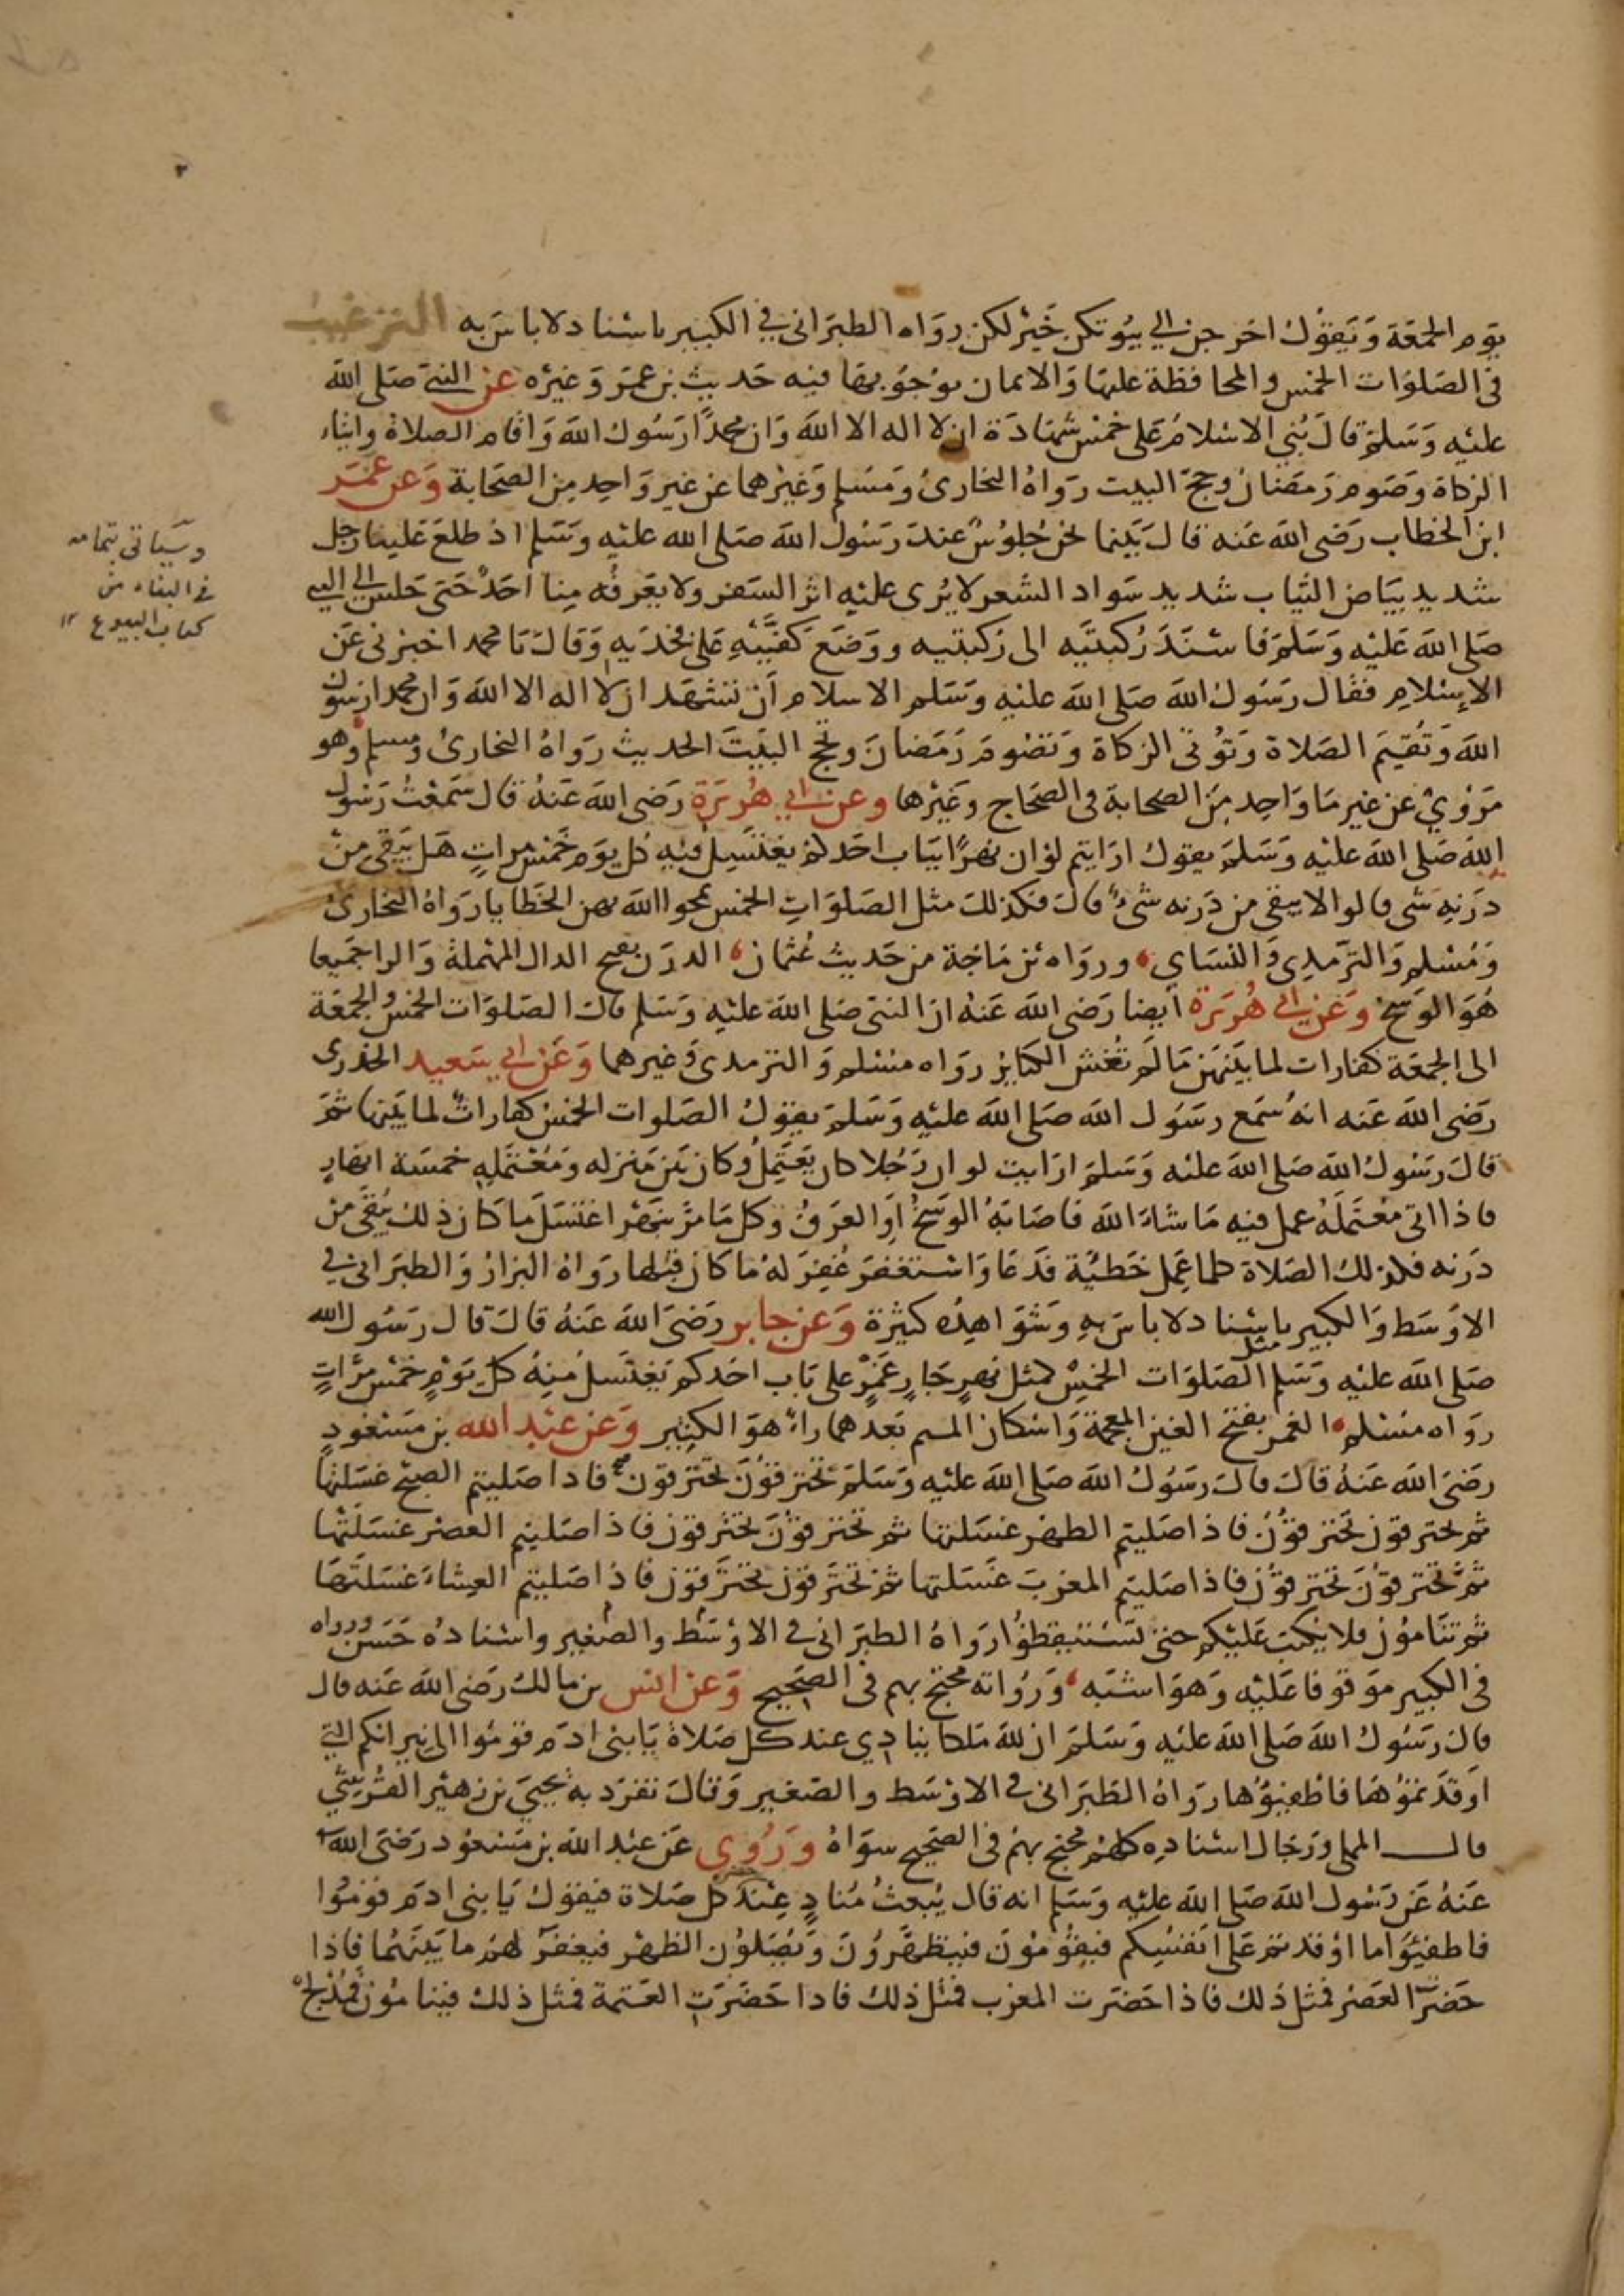 يوم الجمعة ويقول اخرجن الي بيوتكن خير لكن رواه الطبراني في الكبير باسناد لا باس به الترغيب
في الصلوات الخمس والمحافظة عليها والايمان بوجوبها فيه حديث بن عمر وغيره عن النبي صلى الله
عليه وسلم قال بني الاسلام على خمس شهادة ان لا اله الا الله وان محمدا رسول الله واقام الصلاة وايتاء
الزكاة وصوم رمضان وحج البيت رواه البخاري ومسلم وغيرهما عن غير واحد من الصحابة وعن عمر
ابن الخطاب رضي الله عنه قال بينما نحن جلوس عند رسول الله صلى الله عليه وسلم اذ طلع علينا رجل
شديد بياض الثياب شديد سواد الشعر لا يرى عليه اثر السفر ولا يعرفه منا احد حتى جلس الي النبي
صلى الله عليه وسلم فاسند ركبتيه الى ركبتيه ووضع كفيه على فخديه وقال يا محمد اخبرني عن
الإسلام فقال رسول الله صلى الله عليه وسلم الاسلام أن تشهد ان لا اله الا الله وان محمدا رسول
الله وتقيم الصلاة وتؤتي الزكاة وتصوم رمضان وتحج البيت الحديث رواه البخاري ومسلم وهو
مروي عن غير ما واحد من الصحابة في الصحاح وغيرها وعن ابي هريرة رضي الله عنه قال سمعت رسول
الله صلى الله عليه وسلم يقول ارايتم لو ان نهرا بباب احدكم يغتسل فيه كل يوم خمس مرات هل يبقى من
درنه شي قالوا لا يبقى من درنه شيء قال فكذلك مثل الصلوات الخمس يمحوا الله بهن الخطايا رواه البخاري
ومسلم والترمدي والنساي ورواه بن ماجة من حديث عثمان الدرن بفتح الدال المهملة والرا جميعا
هو الوسخ وعن ابي هريرة أيضا رضي الله عنه ان النبي صلى الله عليه وسلم قال الصلوات الخمس والجمعة
الى الجمعة كفارات لما بينهن ما لم تغش الكبائر رواه مسلم والترمدي وغيرهما وعن ابي سعيد الخدري
رضي الله عنه انه سمع رسول الله صلى الله عليه وسلم يقول الصلوات الخمس كفارات لما بينها ثم
قال رسول الله صلى الله عليه وسلم ارايت لو ان رجلا كان يعتمل وكان بين منزله ومعتمله خمسة انهار
فاذا اتى معتمله عمل فيه ما شاء الله فاصابه الوسخ او العرق وكل ما مر بنهر اغتسل ما كان ذلك يبقي من
درنه فكذلك الصلاة كلما عمل خطيئة فدعا واستغفر غفر له ما كان قبلها رواه البزار والطبراني في
الاوسط والكبير باسناد لا باس به وشواهده كثيرة وعن جابر رضي الله عنه قال قال رسول الله
صلى الله عليه وسلم مثل الصلوات الخمس كمثل نهر جار غمر على باب احدكم يغتسل منه كل يوم خمس مرات
رواه مسلم الغمر بفتح الغين المعجمة واسكان الميم بعدهما راء هو الكثير وعن عبد الله بن مسعود
رضي الله عنه قال قال رسول الله صلى الله عليه وسلم تحترقون تحترقون فاذا صليتم الصبح غسلتها
ثم تحترقون تحترقون فاذا صليتم الظهر غسلتها ثم تحترقون تحترقون فاذا صليتم العصر غسلتها
ثم تحترقون تحترقون فاذا صليتم المغرب غسلتها ثم تحترقون تحترقون فاذا صليتم العشاء غسلتها
ثم تنامون فلا يكتب عليكم حتى تستيقظوا رواه الطبراني في الاوسط والصغير واسناده حسن ورواه
في الكبير موقوفا عليه وهو اشبه ورواته محتج بهم في الصحيح وعن انس بن مالك رضي الله عنه قال
قال رسول الله صلى الله عليه وسلم ان لله ملكا ينادي عند كل صلاة يا بني ادم قوموا الى نيرانكم التي
اوقدتموها فاطفئوها رواه الطبراني في الاوسط والصغير وقال تفرد به يحيى بن زهير القرشي
قال المملي ورجال اسناده كلهم محتج بهم في الصحيح سواه وروي عن عبد الله بن مسعود رضي الله
عنه عن رسول الله صلى الله عليه وسلم انه قال يبعث مناد عند كل صلاة فيقول يا بني ادم قوموا
فاطفئوا ما اوقدتم على انفسكم فيقومون فيتطهرون ويصلون الظهر فيغفر لهم ما بينهما فاذا
حضرت العصر فمثل ذلك فاذا حضرت المغرب فمثل ذلك فاذا حضرت العتمة فمثل ذلك فينامون فمدلج
وسياتي بتمامه
في البناء من
كتاب البيوع ١٢